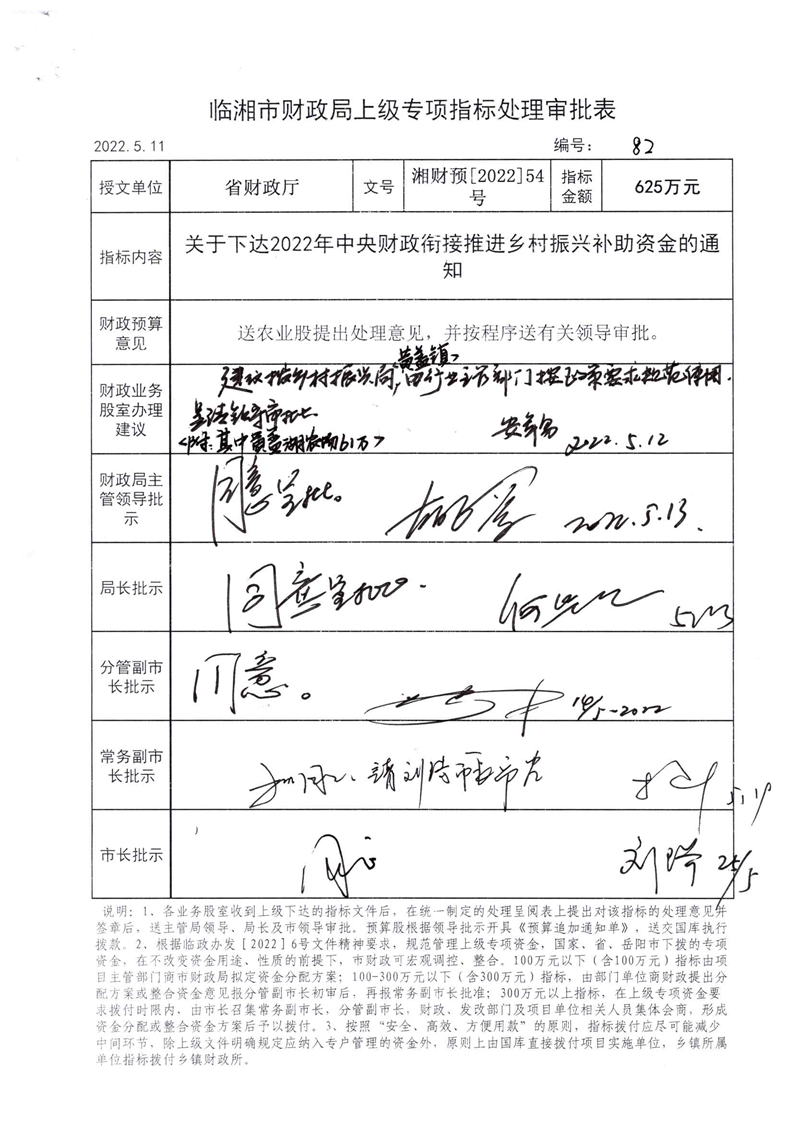 临湘市财政局上级专项指标处理审批表
2022.5.11 编号: 82
授文单位 省财政厅 文号 湘财预[2022]54号 指标金额 625万元
指标内容 关于下达2022年中央财政衔接推进乡村振兴补助资金的通知
财政预算意见 送农业股提出处理意见，并按程序送有关领导审批。
财政业务股室办理建议
黄盖镇
建议拨乡村振兴局，由行业主管部门按政策要求规范使用.
呈请领导审批
<附:其中黄盖湖农场61万>
2022.5.12
财政局主管领导批示 同意呈批。 2022.5.13.
局长批示 同意呈批.
分管副市长批示 同意。 14/5-2022
常务副市长批示 5.19
市长批示 同意 刘 25/5
说明: 1、各业务股室收到上级下达的指标文件后，在统一制定的处理呈阅表上提出对该指标的处理意见并
签章后，送主管局领导、局长及市领导审批。预算股根据领导批示开具《预算追加通知单》，送交国库执行
拨款。2、根据临政办发[2022]6号文件精神要求，规范管理上级专项资金，国家、省、岳阳市下拨的专项
资金，在不改变资金用途、性质的前提下，市财政可宏观调控、整合。100万元以下（含100万元）指标由项
目主管部门商市财政局拟定资金分配方案；100-300万元以下（含300万元）指标，由部门单位商财政提出分
配方案或整合资金意见报分管副市长初审后，再报常务副市长批准；300万元以上指标，在上级专项资金要
求拨付时限内，由市长召集常务副市长，分管副市长，财政、发改部门及项目单位相关人员集体会商，形成
资金分配或整合资金方案后予以拨付。3、按照“安全、高效、方便用款”的原则，指标拨付应尽可能减少
中间环节，除上级文件明确规定应纳入专户管理的资金外，原则上由国库直接拨付项目实施单位，乡镇所属
单位指标拨付乡镇财政所。